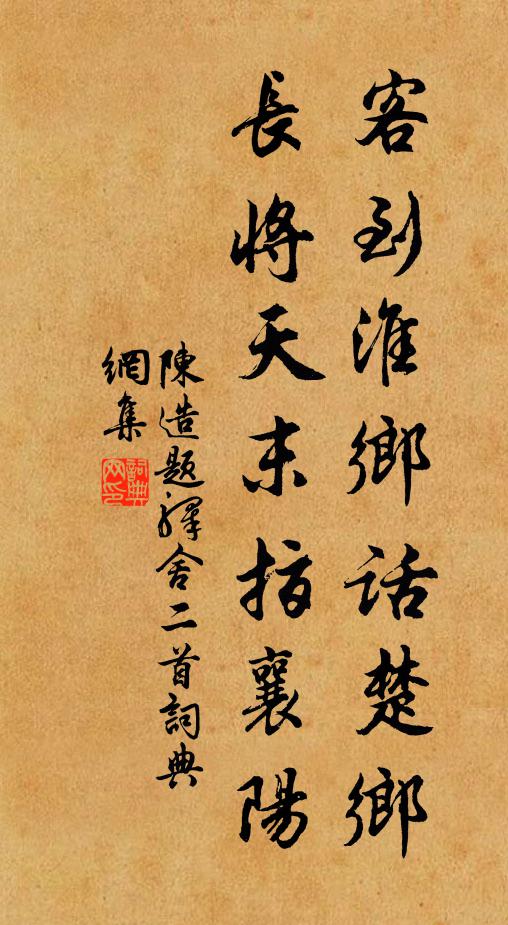 客到淮鄉話楚鄉
長將天末指襄陽
陳造題驛舍二首詞典
網集
詞典
网印